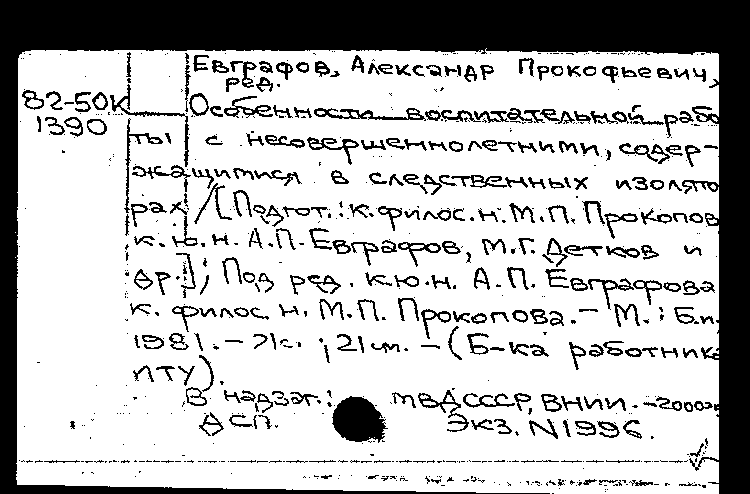 Евграфов, Александр Прокофьевич,
ред.
82-50К
1390
Особенности воспитательной рабо
ты с несовершеннолетними, содер-
жащимися в следственных изолято
рах /[Подгот.: к.филос.н. М.П. Прокопов
к.ю.н. А.П. Евграфов, М.Г. Детков и
др.]; Под ред. к.ю.н. А.П. Евграфова
к. филос. н. М.П. Прокопова. – М.: Б.и.
1981. – 71с. ; 21см. – (Б-ка работника
ИТУ).
В надзаг.: МВД СССР, ВНИИ. – 2000э
ДСП. Экз. N1996.